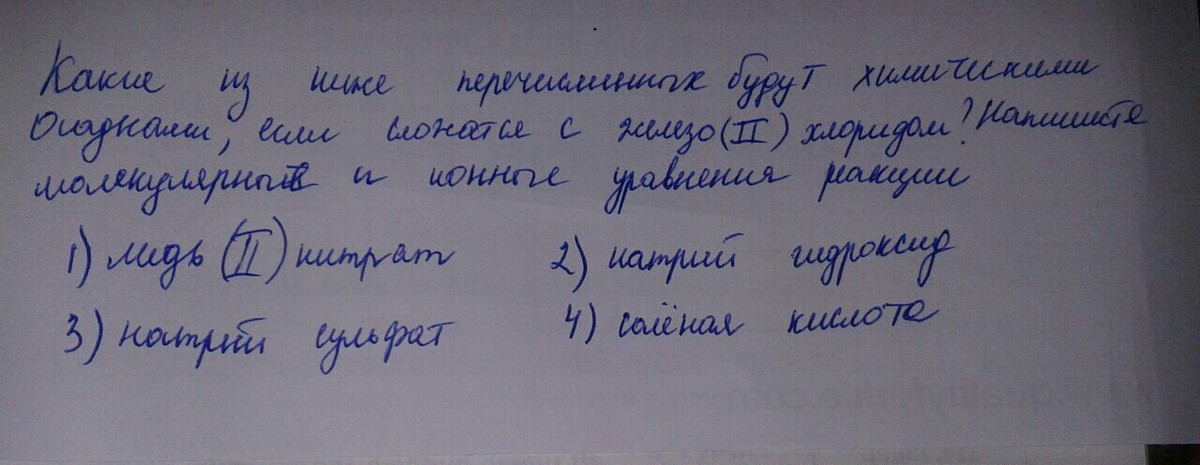 Какие из ниже перечисленных будут химическими
осадками, если сложатся с железо (II) хлоридом? Напишите
молекулярные и ионные уравнения реакции
1) медь (II) нитрат 2) натрий гидроксид
3) натрий сульфат 4) солёная кислота